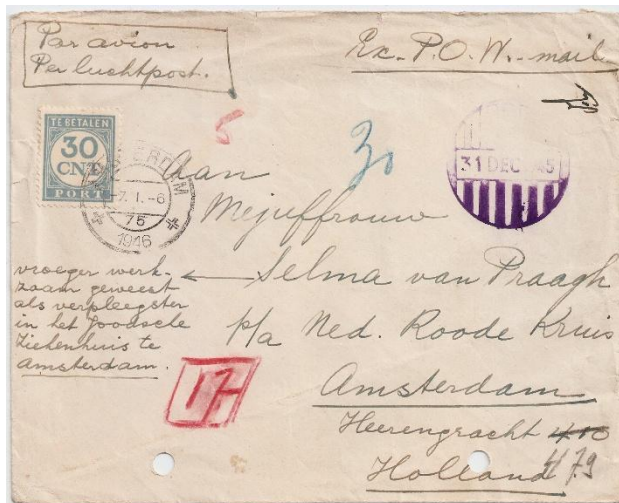 Par avion
Per luchtpost.
Ex-P.O.W.-mail
TE BETALEN
30
CNT
PORT
AMSTERDAM
-7.1.-6
75
1946
5
30
31 DEC 1945
Aan
Mejuffrouw
Selma van Praagh
p/a Ned. Roode Kruis
Amsterdam
Heerengracht 410
479
Holland
vroeger werk-
zaam geweest
als verpleegster
in het Joodsche
Ziekenhuis te
Amsterdam.
17